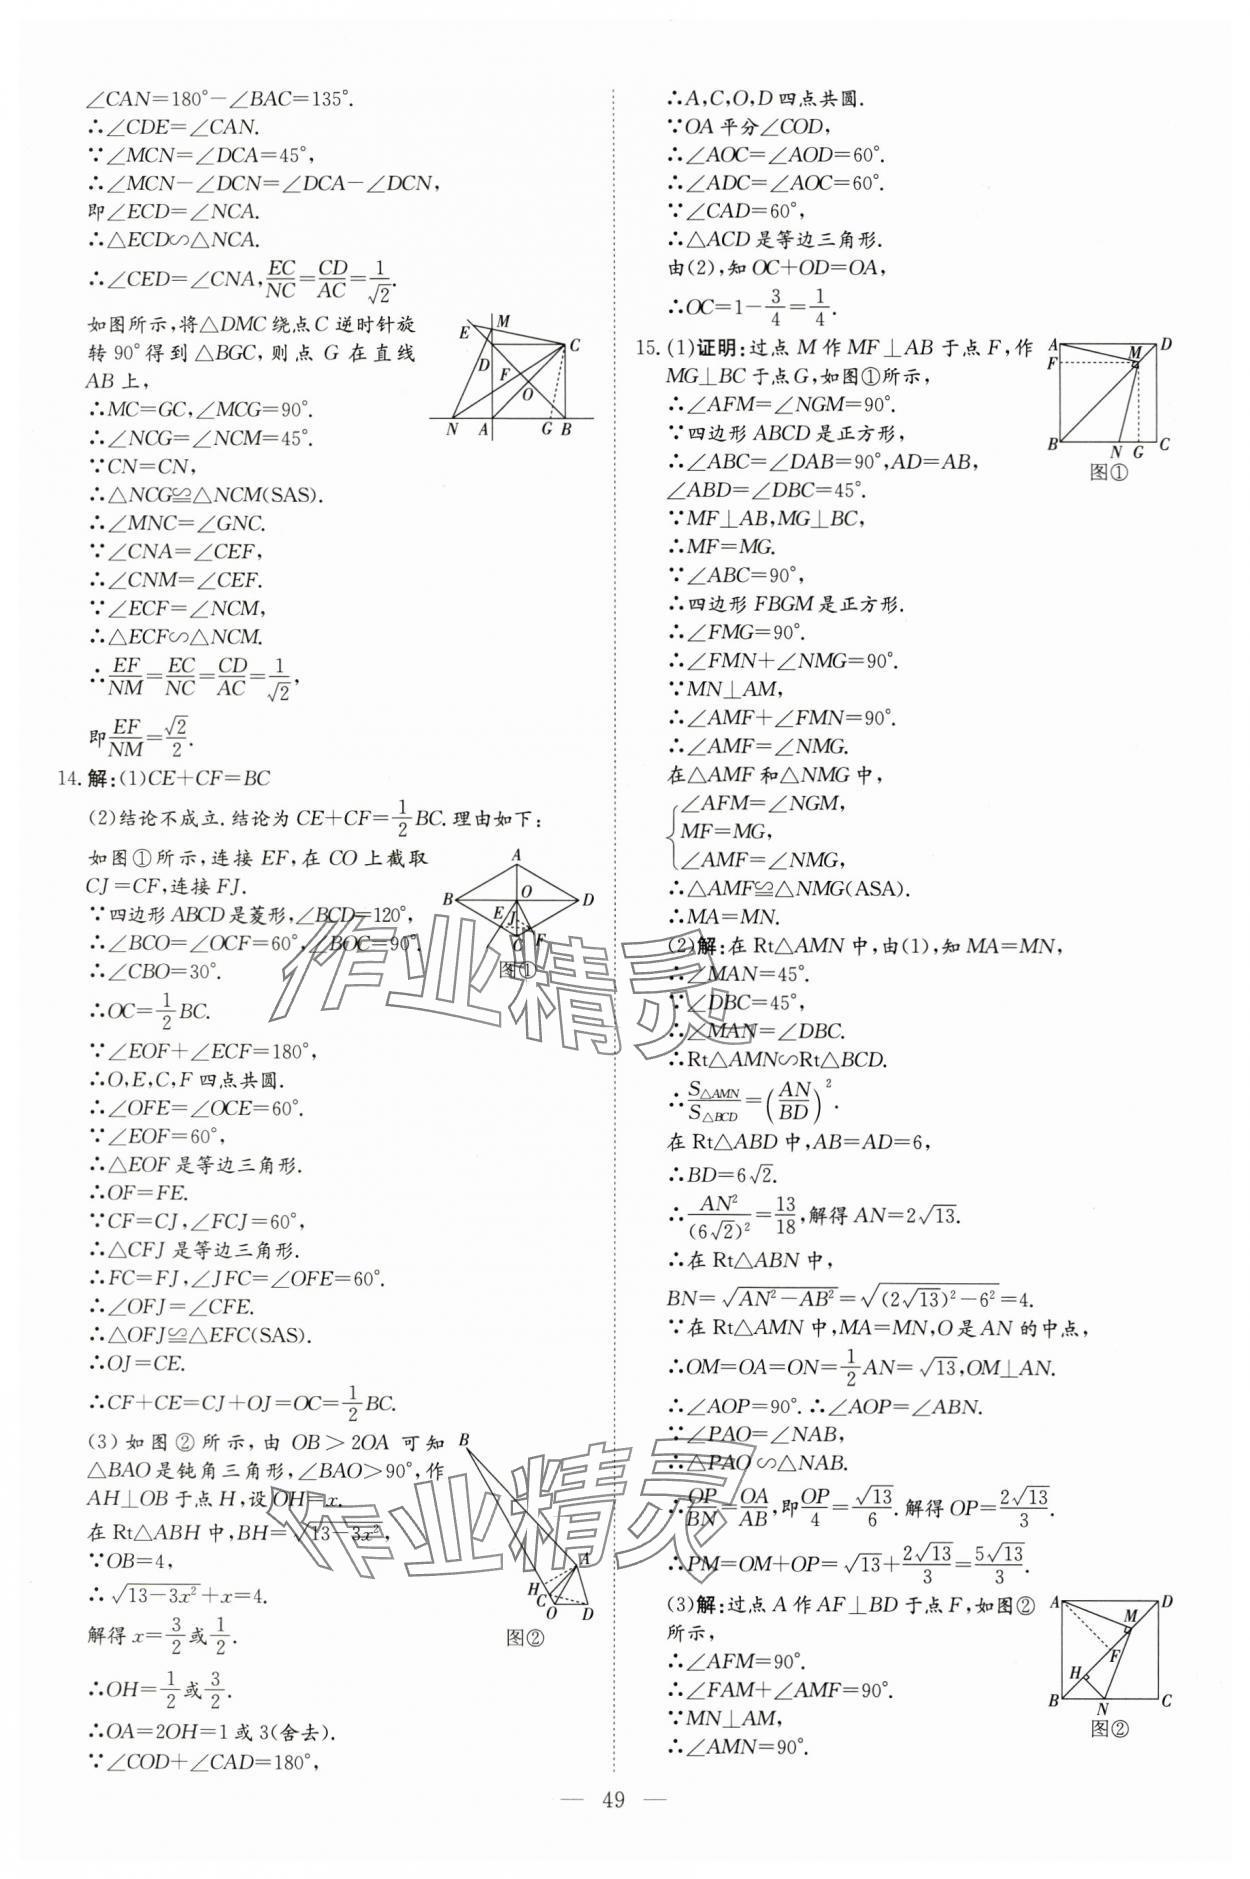 ∠CAN=180°−∠BAC=135°.
∴∠CDE=∠CAN.
∵∠MCN=∠DCA=45°,
∴∠MCN−∠DCN=∠DCA−∠DCN,
即∠ECD=∠NCA.
∴△ECD∽△NCA.
∴∠CED=∠CNA,EC/NC=CD/AC=1/√2.
如图所示,将△DMC绕点C逆时针旋
转90°得到△BGC,则点G在直线
AB上,
∴MC=GC,∠MCG=90°.
∴∠NCG=∠NCM=45°.
∵CN=CN,
∴△NCG≌△NCM(SAS).
∴∠MNC=∠GNC.
∵∠CNA=∠CEF,
∴∠CNM=∠CEF.
∵∠ECF=∠NCM,
∴△ECF∽△NCM.
∴EF/NM=EC/NC=CD/AC=1/√2,
即EF/NM=√2/2.
E M C D F O N A G B
14.解:(1)CE+CF=BC
(2)结论不成立.结论为CE+CF=1/2BC.理由如下:
如图①所示,连接EF,在CO上截取
CJ=CF,连接FJ.
∵四边形ABCD是菱形,∠BCD=120°,
∴∠BCO=∠OCF=60°,∠BOC=90°.
∴∠CBO=30°.
∴OC=1/2BC.
∵∠EOF+∠ECF=180°,
∴O,E,C,F四点共圆.
∴∠OFE=∠OCE=60°.
∵∠EOF=60°,
∴△EOF是等边三角形.
∴OF=FE.
∵CF=CJ,∠FCJ=60°,
∴△CFJ是等边三角形.
∴FC=FJ,∠JFC=∠OFE=60°.
∴∠OFJ=∠CFE.
∴△OFJ≌△EFC(SAS).
∴OJ=CE.
∴CF+CE=CJ+OJ=OC=1/2BC.
A B O D E J C F
图①
(3)如图②所示,由OB>2OA可知
△BAO是钝角三角形,∠BAO>90°,作
AH⊥OB于点H,设OH=x.
在Rt△ABH中,BH=√(13−3x²),
∵OB=4,
∴√(13−3x²)+x=4.
解得x=3/2或1/2.
∴OH=1/2或3/2.
∴OA=2OH=1或3(舍去).
∵∠COD+∠CAD=180°,
B A H C O D
图②
∴A,C,O,D四点共圆.
∵OA平分∠COD,
∴∠AOC=∠AOD=60°.
∴∠ADC=∠AOC=60°.
∵∠CAD=60°,
∴△ACD是等边三角形.
由(2),知OC+OD=OA,
∴OC=1−3/4=1/4.
15.(1)证明:过点M作MF⊥AB于点F,作
MG⊥BC于点G,如图①所示,
∴∠AFM=∠NGM=90°.
∵四边形ABCD是正方形,
∴∠ABC=∠DAB=90°,AD=AB,
∠ABD=∠DBC=45°.
∵MF⊥AB,MG⊥BC,
∴MF=MG.
∵∠ABC=90°,
∴四边形FBGM是正方形.
∴∠FMG=90°.
∴∠FMN+∠NMG=90°.
∵MN⊥AM,
∴∠AMF+∠FMN=90°.
∴∠AMF=∠NMG.
在△AMF和△NMG中,
∠AFM=∠NGM,
MF=MG,
∠AMF=∠NMG,
∴△AMF≌△NMG(ASA).
∴MA=MN.
A D F M B N G C
图①
(2)解:在Rt△AMN中,由(1),知MA=MN,
∴∠MAN=45°.
∵∠DBC=45°,
∴∠MAN=∠DBC.
∴Rt△AMN∽Rt△BCD.
∴S△AMN/S△BCD=(AN/BD)².
在Rt△ABD中,AB=AD=6,
∴BD=6√2.
∴AN²/(6√2)²=13/18,解得AN=2√13.
∴在Rt△ABN中,
BN=√(AN²−AB²)=√((2√13)²−6²)=4.
∵在Rt△AMN中,MA=MN,O是AN的中点,
∴OM=OA=ON=1/2AN=√13,OM⊥AN.
∴∠AOP=90°.∴∠AOP=∠ABN.
∵∠PAO=∠NAB,
∴△PAO∽△NAB.
∴OP/BN=OA/AB,即OP/4=√13/6.解得OP=2√13/3.
∴PM=OM+OP=√13+2√13/3=5√13/3.
(3)解:过点A作AF⊥BD于点F,如图②
所示,
∴∠AFM=90°.
∴∠FAM+∠AMF=90°.
∵MN⊥AM,
∴∠AMN=90°.
A D M F H B N C
图②
作业精灵
作业精灵
— 49 —